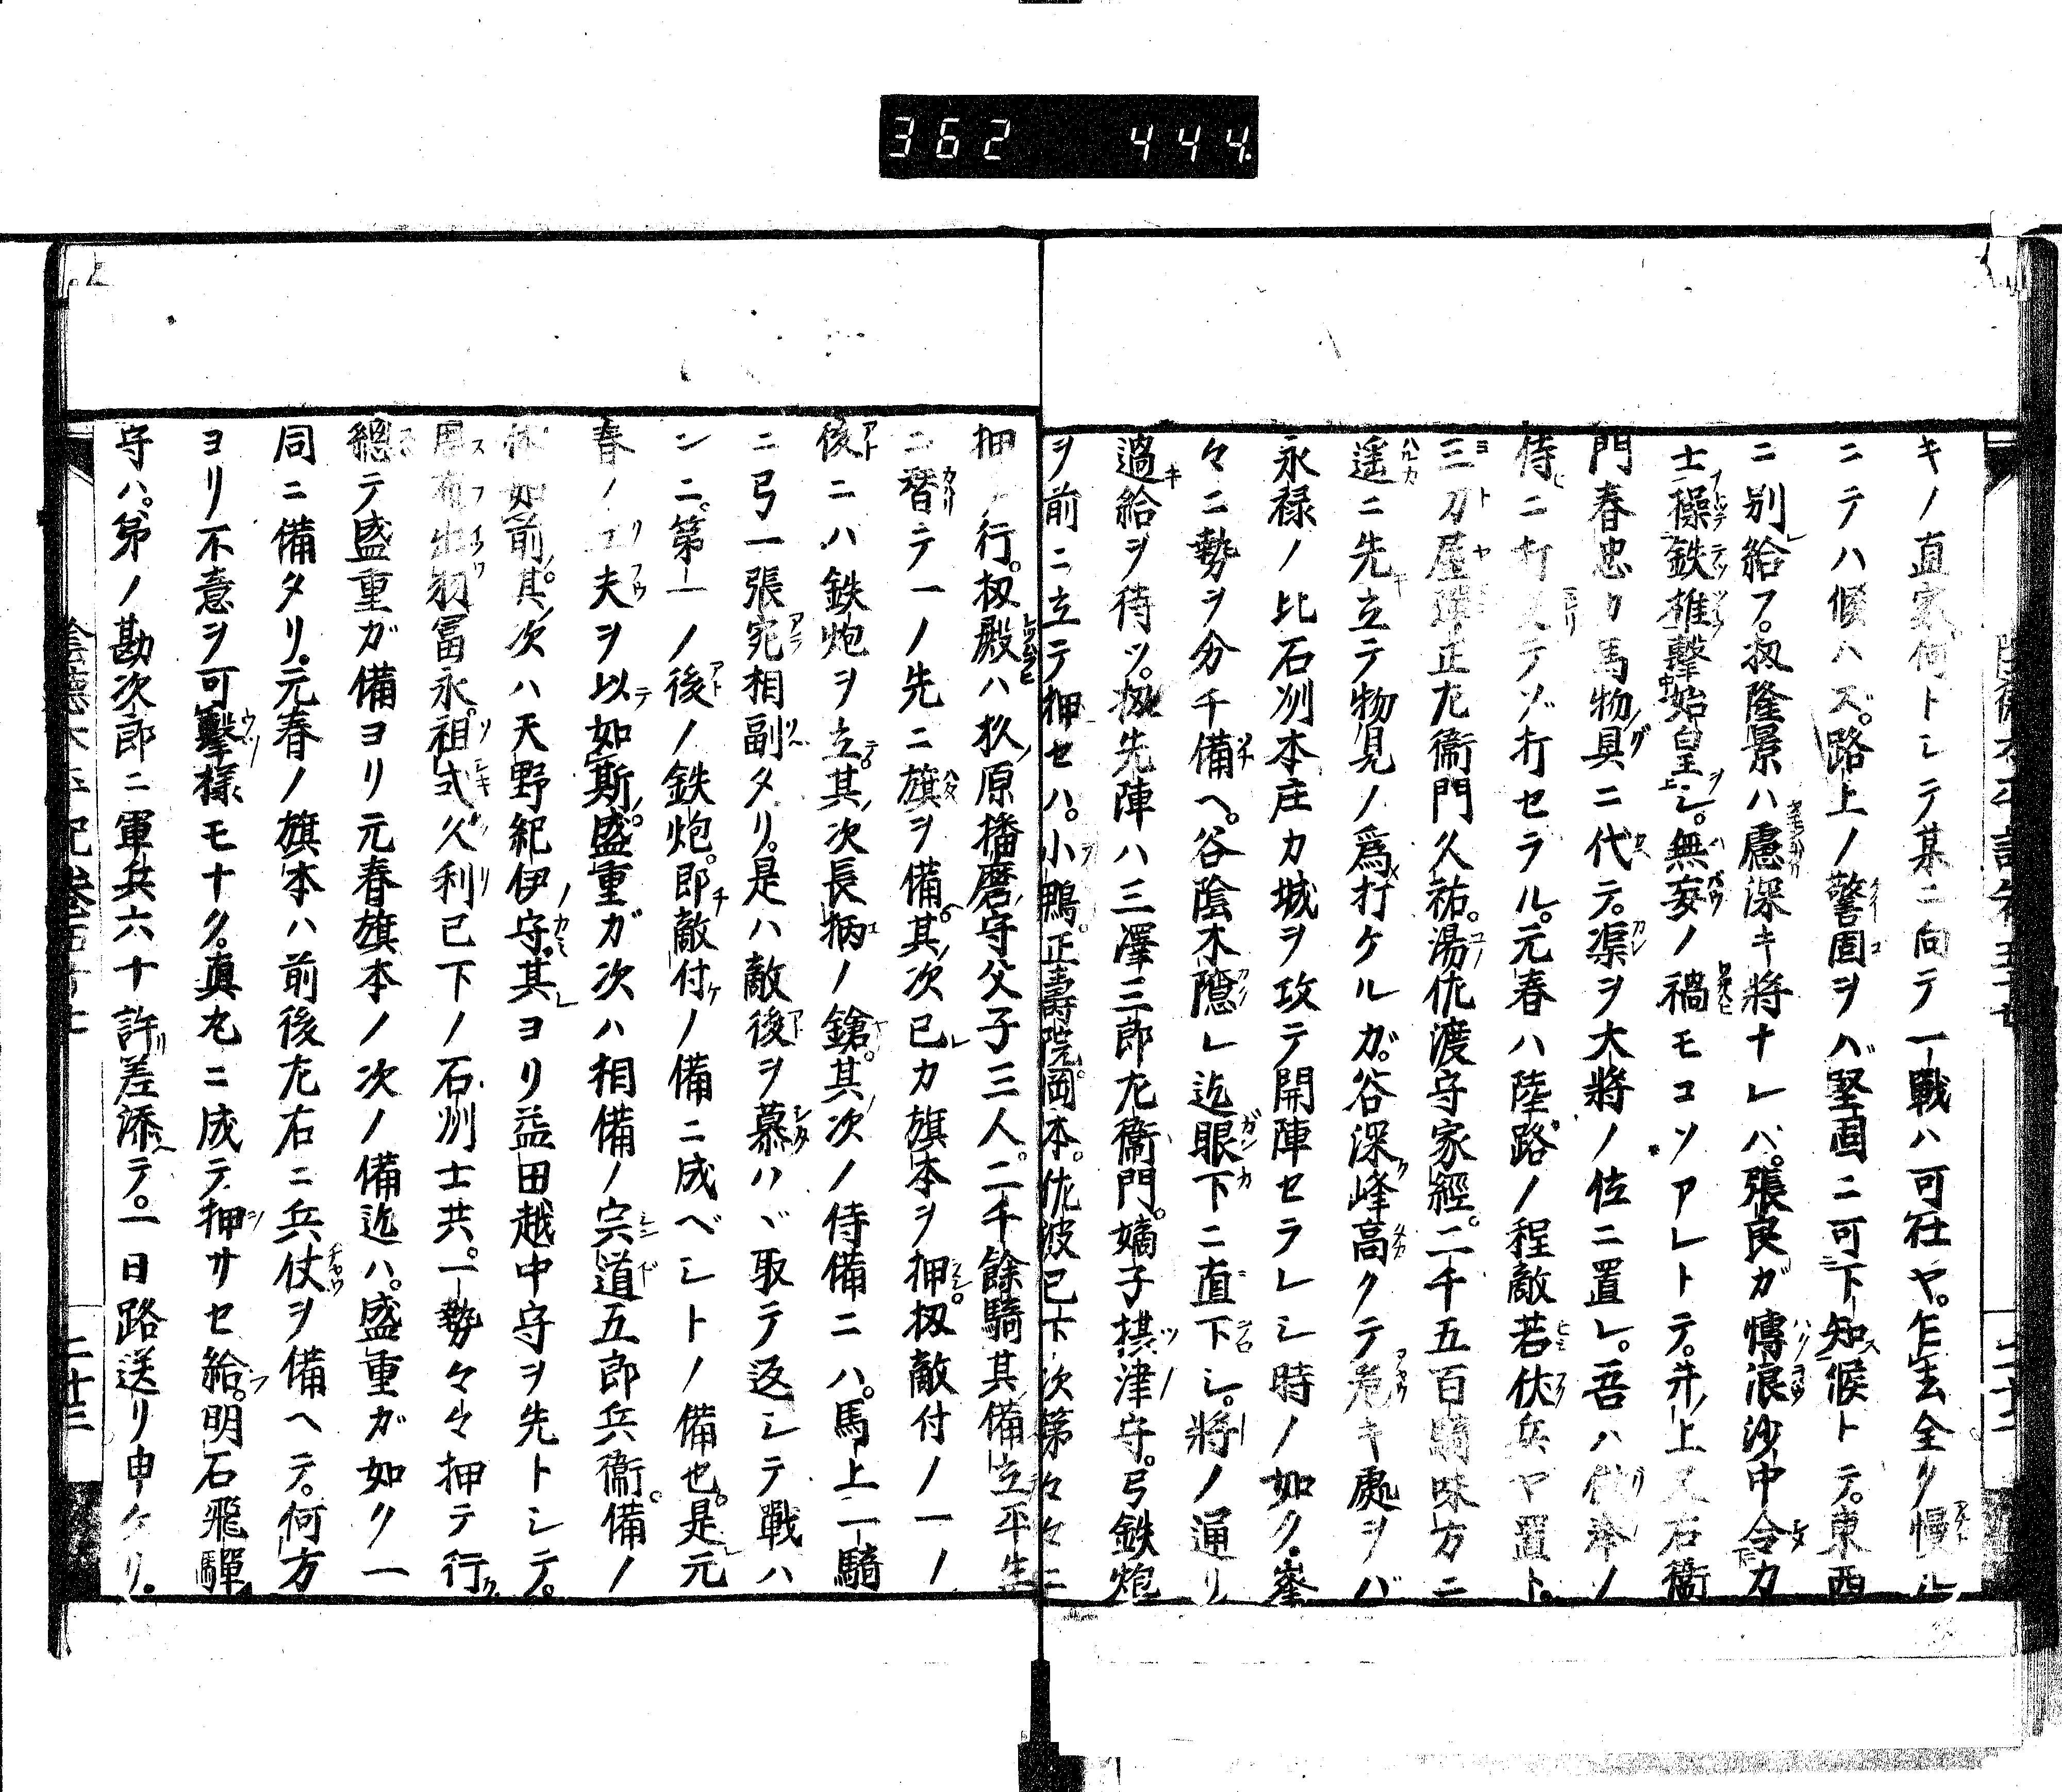 362 444
キノ直家何トシテ某ニ向テ一戰ハ可仕ヤ。乍去全ク慢ル
ニテハ候ハズ。路上ノ警固ヲバ堅固ニ可下知候トテ。東西
ニ別レ給フ。扨隆景ハ慮深キ將ナレバ。張良ガ博浪沙中令力
士操鉄椎擊始皇シ。無妄ノ禍モコソアレトテ。井上又右衞
門春忠カ馬物具ニ代テ。渠ヲ大將ノ位ニ置レ。吾ハ
侍ニ打テゾ打セラル。元春ハ陸路ノ程敵若伏兵ヤ置ト。
三刀屋彈正尢衞門久祐。湯佐渡守家經。二千五百騎味方ニ
遙ニ先立テ物見ノ爲打ケルガ。谷深ク峰高クテ危キ處ヲバ
永禄ノ比石州本庄カ城ヲ攻テ開陣セラレシ時ノ如ク。峯
々ニ勢ヲ分チ備ヘ。谷陰木隱レ迄眼下ニ直下シ。將ノ通リ
過給ヲ待ツ。扨先陣ハ三澤三郎尢衞門。嫡子摂津守。弓鉄炮
ヲ前ニ立テ押セバ。小鴨。正壽院。岡本。佐波已下次第々々ニ
押行。扨殿ハ杦原播磨守父子三人。二千餘騎其備立平生
ニ替テ一ノ先ニ旗ヲ備ヘ。其次己カ旗本ヲ押シ。扨敵付ノ一ノ
後ニハ鉄炮ヲ立テ。其次長柄ノ鎗。其次ノ侍備ニハ。馬上一騎
ニ弓一張宛相副タリ。是ハ敵後ヲ慕ハヾ取テ返シテ戰ハ
ンニ。第一ノ後ノ鉄炮。即敵付ノ備ニ成ベシトノ備也。是元
春ノ工夫ヲ以テ如斯。盛重ガ次ハ相備ノ宍道五郎兵衞。備ノ
如前。其次ハ天野紀伊守。其ヨリ益田越中守ヲ先トシテ。
周布出羽冨永。祖式久利已下ノ石州士共。一勢々々押テ行ク。
總テ盛重ガ備ヨリ元春旗本ノ次ノ備迄ハ。盛重ガ如ク一
同ニ備タリ。元春ノ旗本ハ前後尢右ニ兵仗ヲ備ヘテ。何方
ヨリ不意ヲ可擊樣モナク。眞丸ニ成テ押サセ給フ。明石飛騨
守ハ。弟ノ勘次郎ニ軍兵六十許差添テ。一日路送リ申ケリ。
二十三